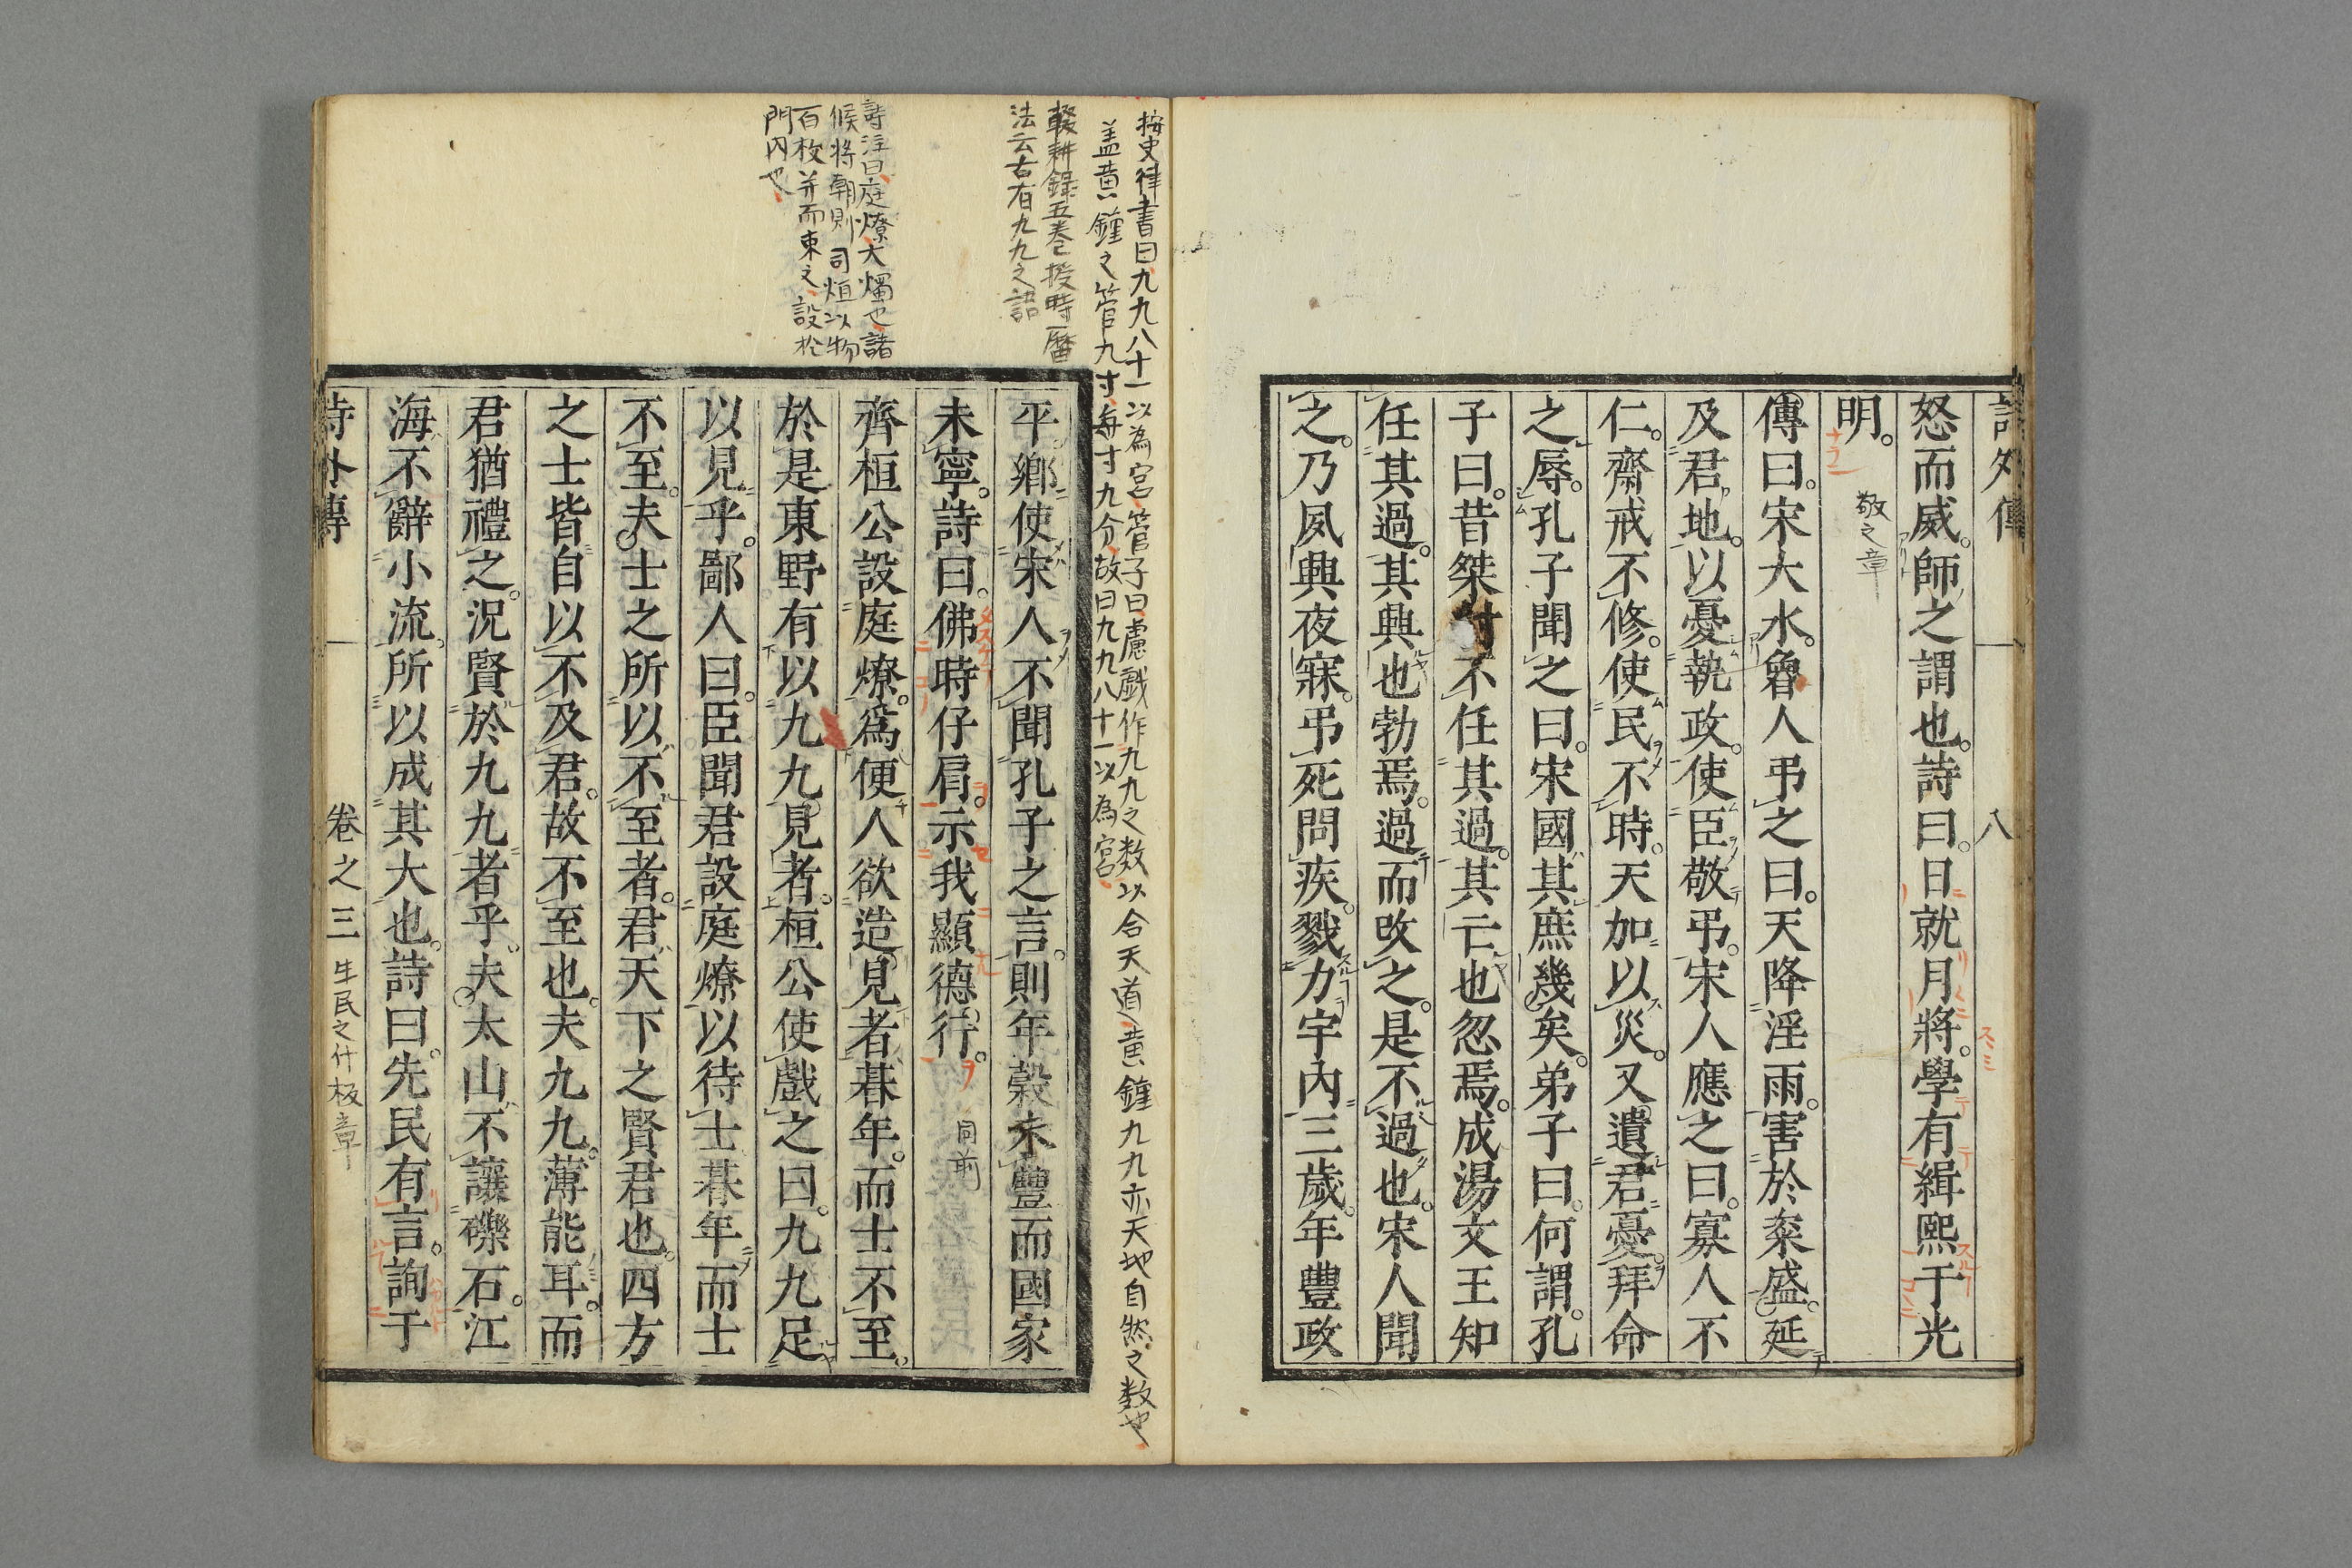 詩外傳 八
怒而威。師之謂也。詩曰。日就月將。學有緝熙于光
明。 敬之章
傳曰。宋大水。魯人弔之曰。天降淫雨。害於粢盛。延
及君地。以憂執政。使臣敬弔。宋人應之曰。寡人不
仁。齋戒不修。使民不時。天加以災。又遺君憂。拜命
之辱。孔子聞之曰。宋國其庶幾矣。弟子曰。何謂。孔
子曰。昔桀紂不任其過。其亡也忽焉。成湯文王知
任其過。其興也勃焉。過而改之。是不過也。宋人聞
之。乃夙興夜寐。弔死問疾。戮力宇內。三歲。年豐政
按史律書曰九九八十一以為宮管子曰慮戲作九九之数以合天道黄鐘九九亦天地自然之数也
盖黄鐘之管九寸每寸九分故曰九九八十一以為宮
輟耕録五巻授時暦
法云古有九九之語
詩注曰庭燎大燭也諸
候将朝則司烜以物
百枚并而束之設於
門内也
平。鄉使宋人不聞孔子之言。則年穀未豐而國家
未寧。詩曰。佛時仔肩。示我顯德行。 同前
齊桓公設庭燎。爲便人欲造見者。朞年。而士不至。
於是東野有以九九見者。桓公使戲之曰。九九足
以見乎。鄙人曰。臣聞君設庭燎以待士朞年而士
不至。夫士之所以不至者。君天下之賢君也。四方
之士皆自以不及君。故不至也。夫九九。薄能耳。而
君猶禮之。況賢於九九者乎。夫太山不讓礫石。江
海不辭小流。所以成其大也。詩曰。先民有言。詢于
詩外傳 卷之三 生民之什板章